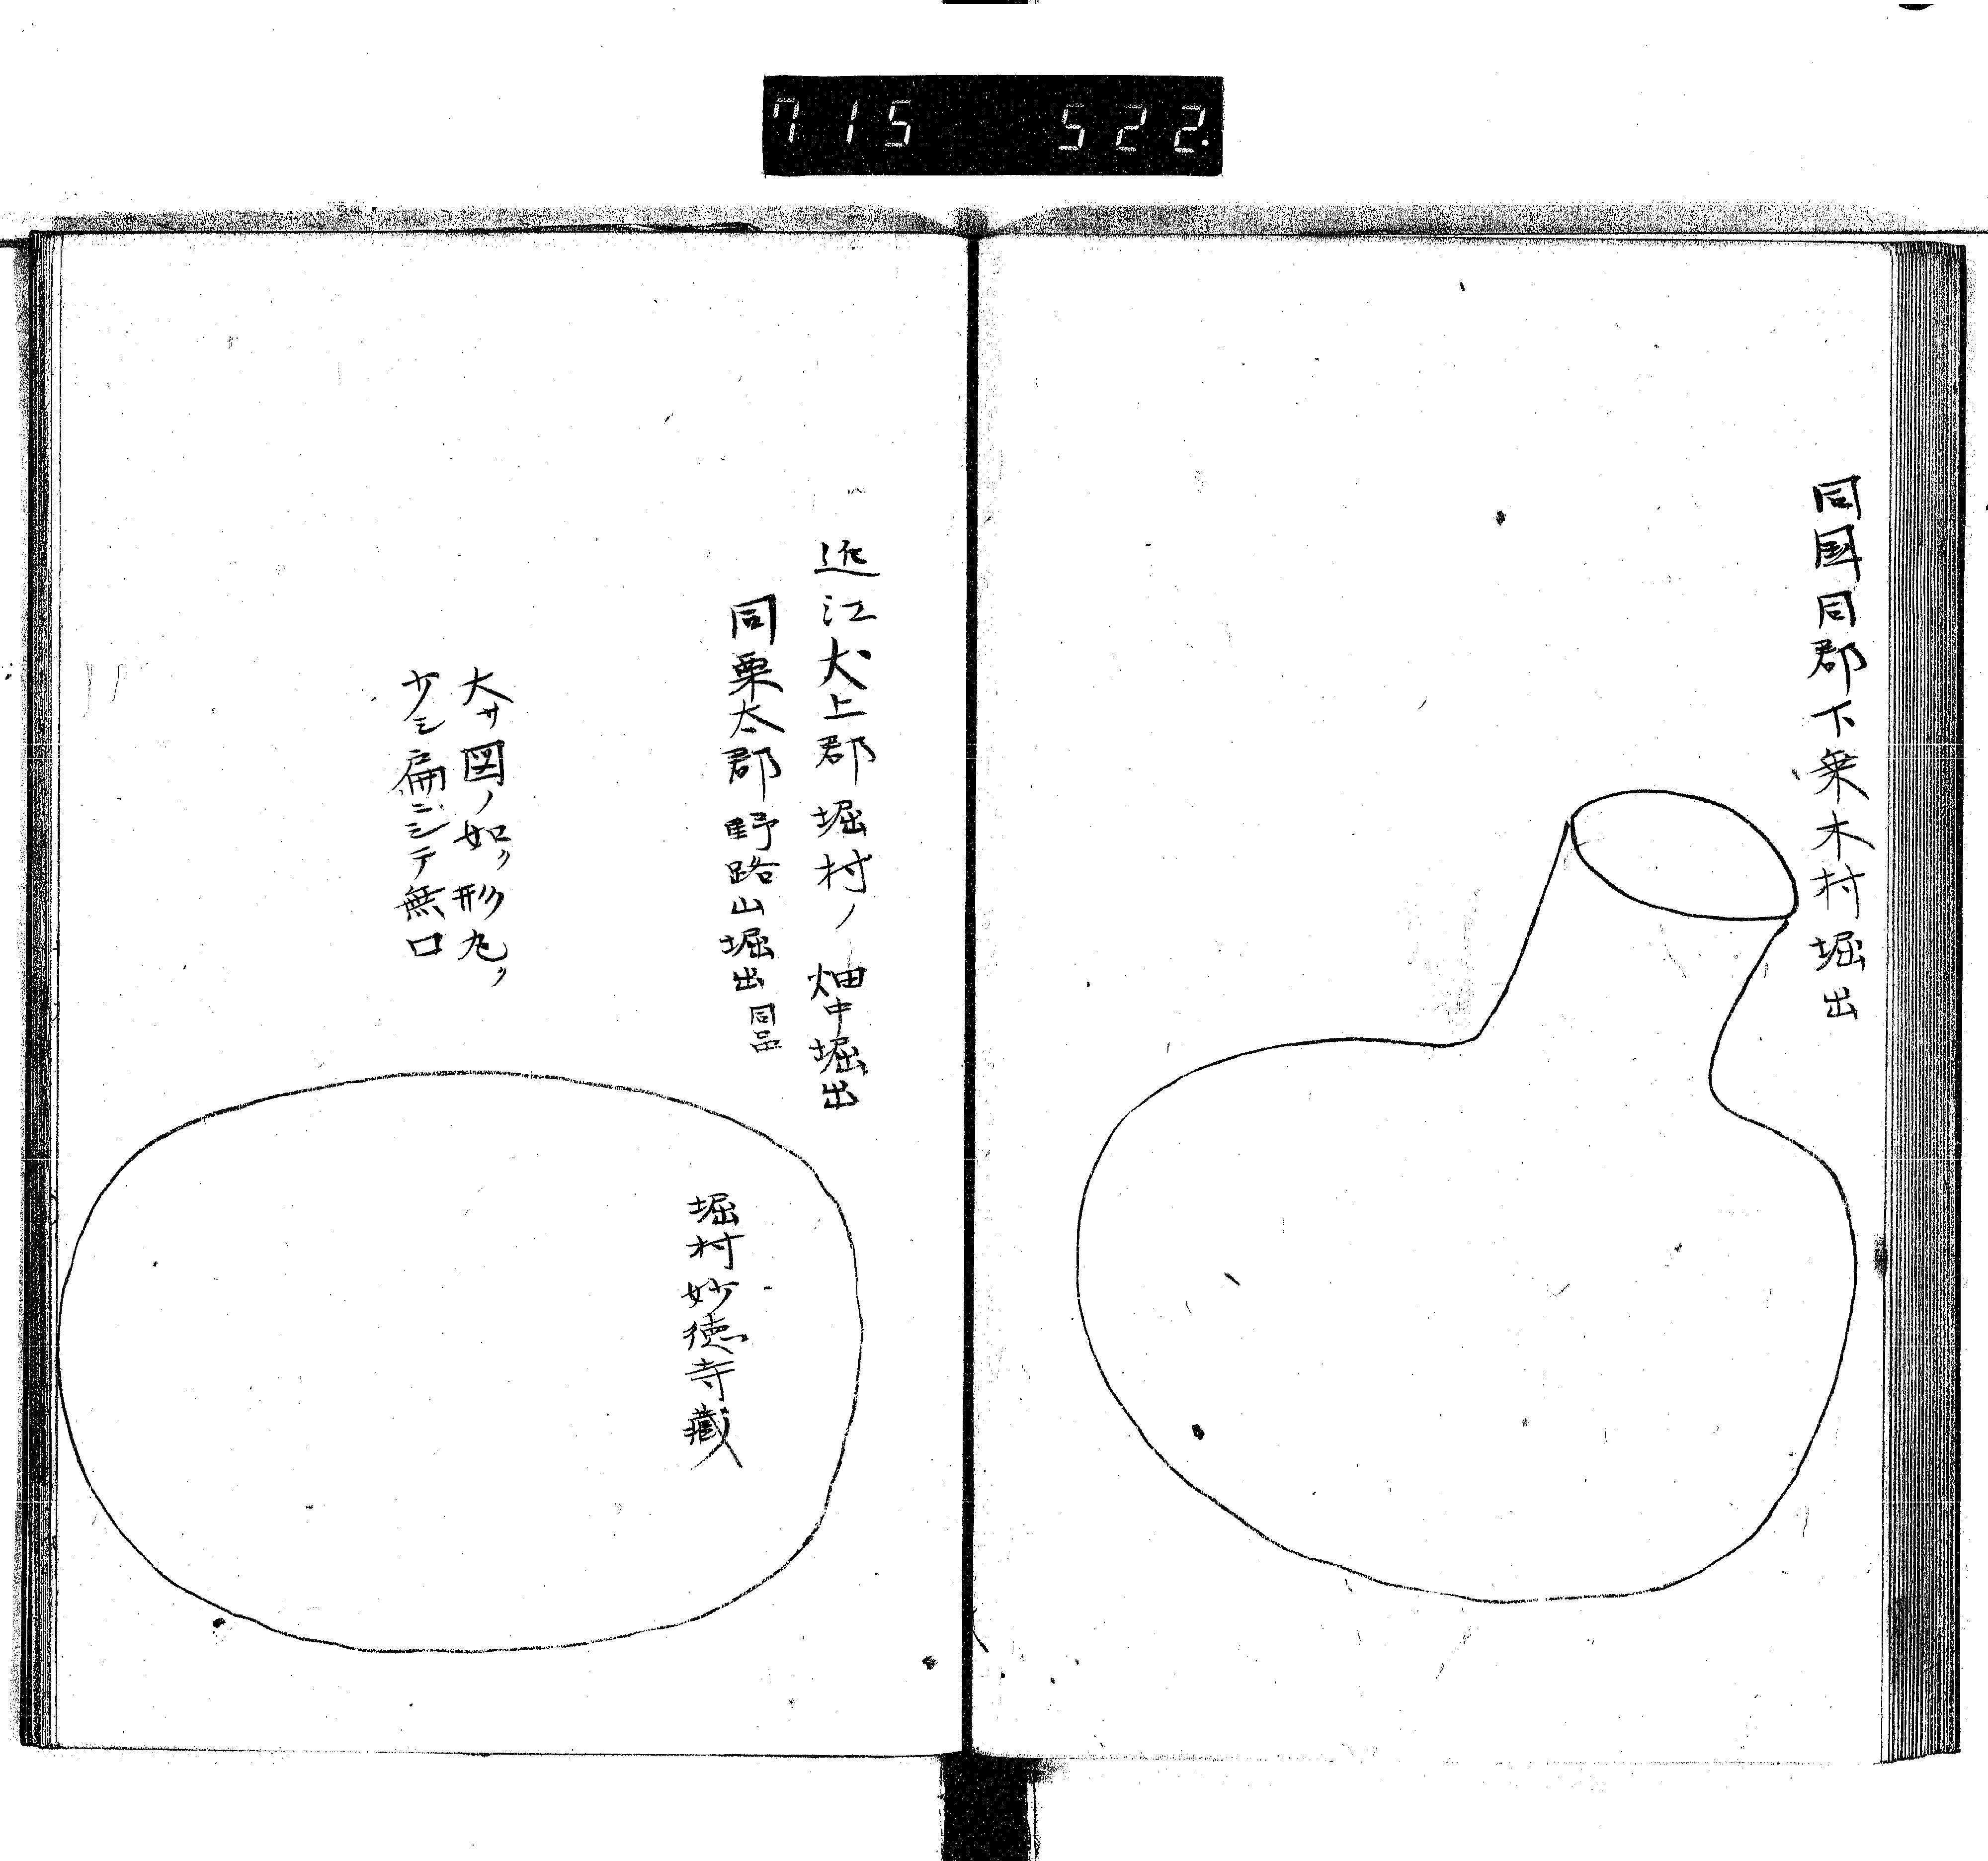 715 522.
同国同郡下乗木村堀出
近江犬上郡堀村ノ畑中堀出
同栗太郡野路山堀出同品
大サ図ノ如ク形丸ク
少シ扁ニシテ無口
堀村妙徳寺蔵